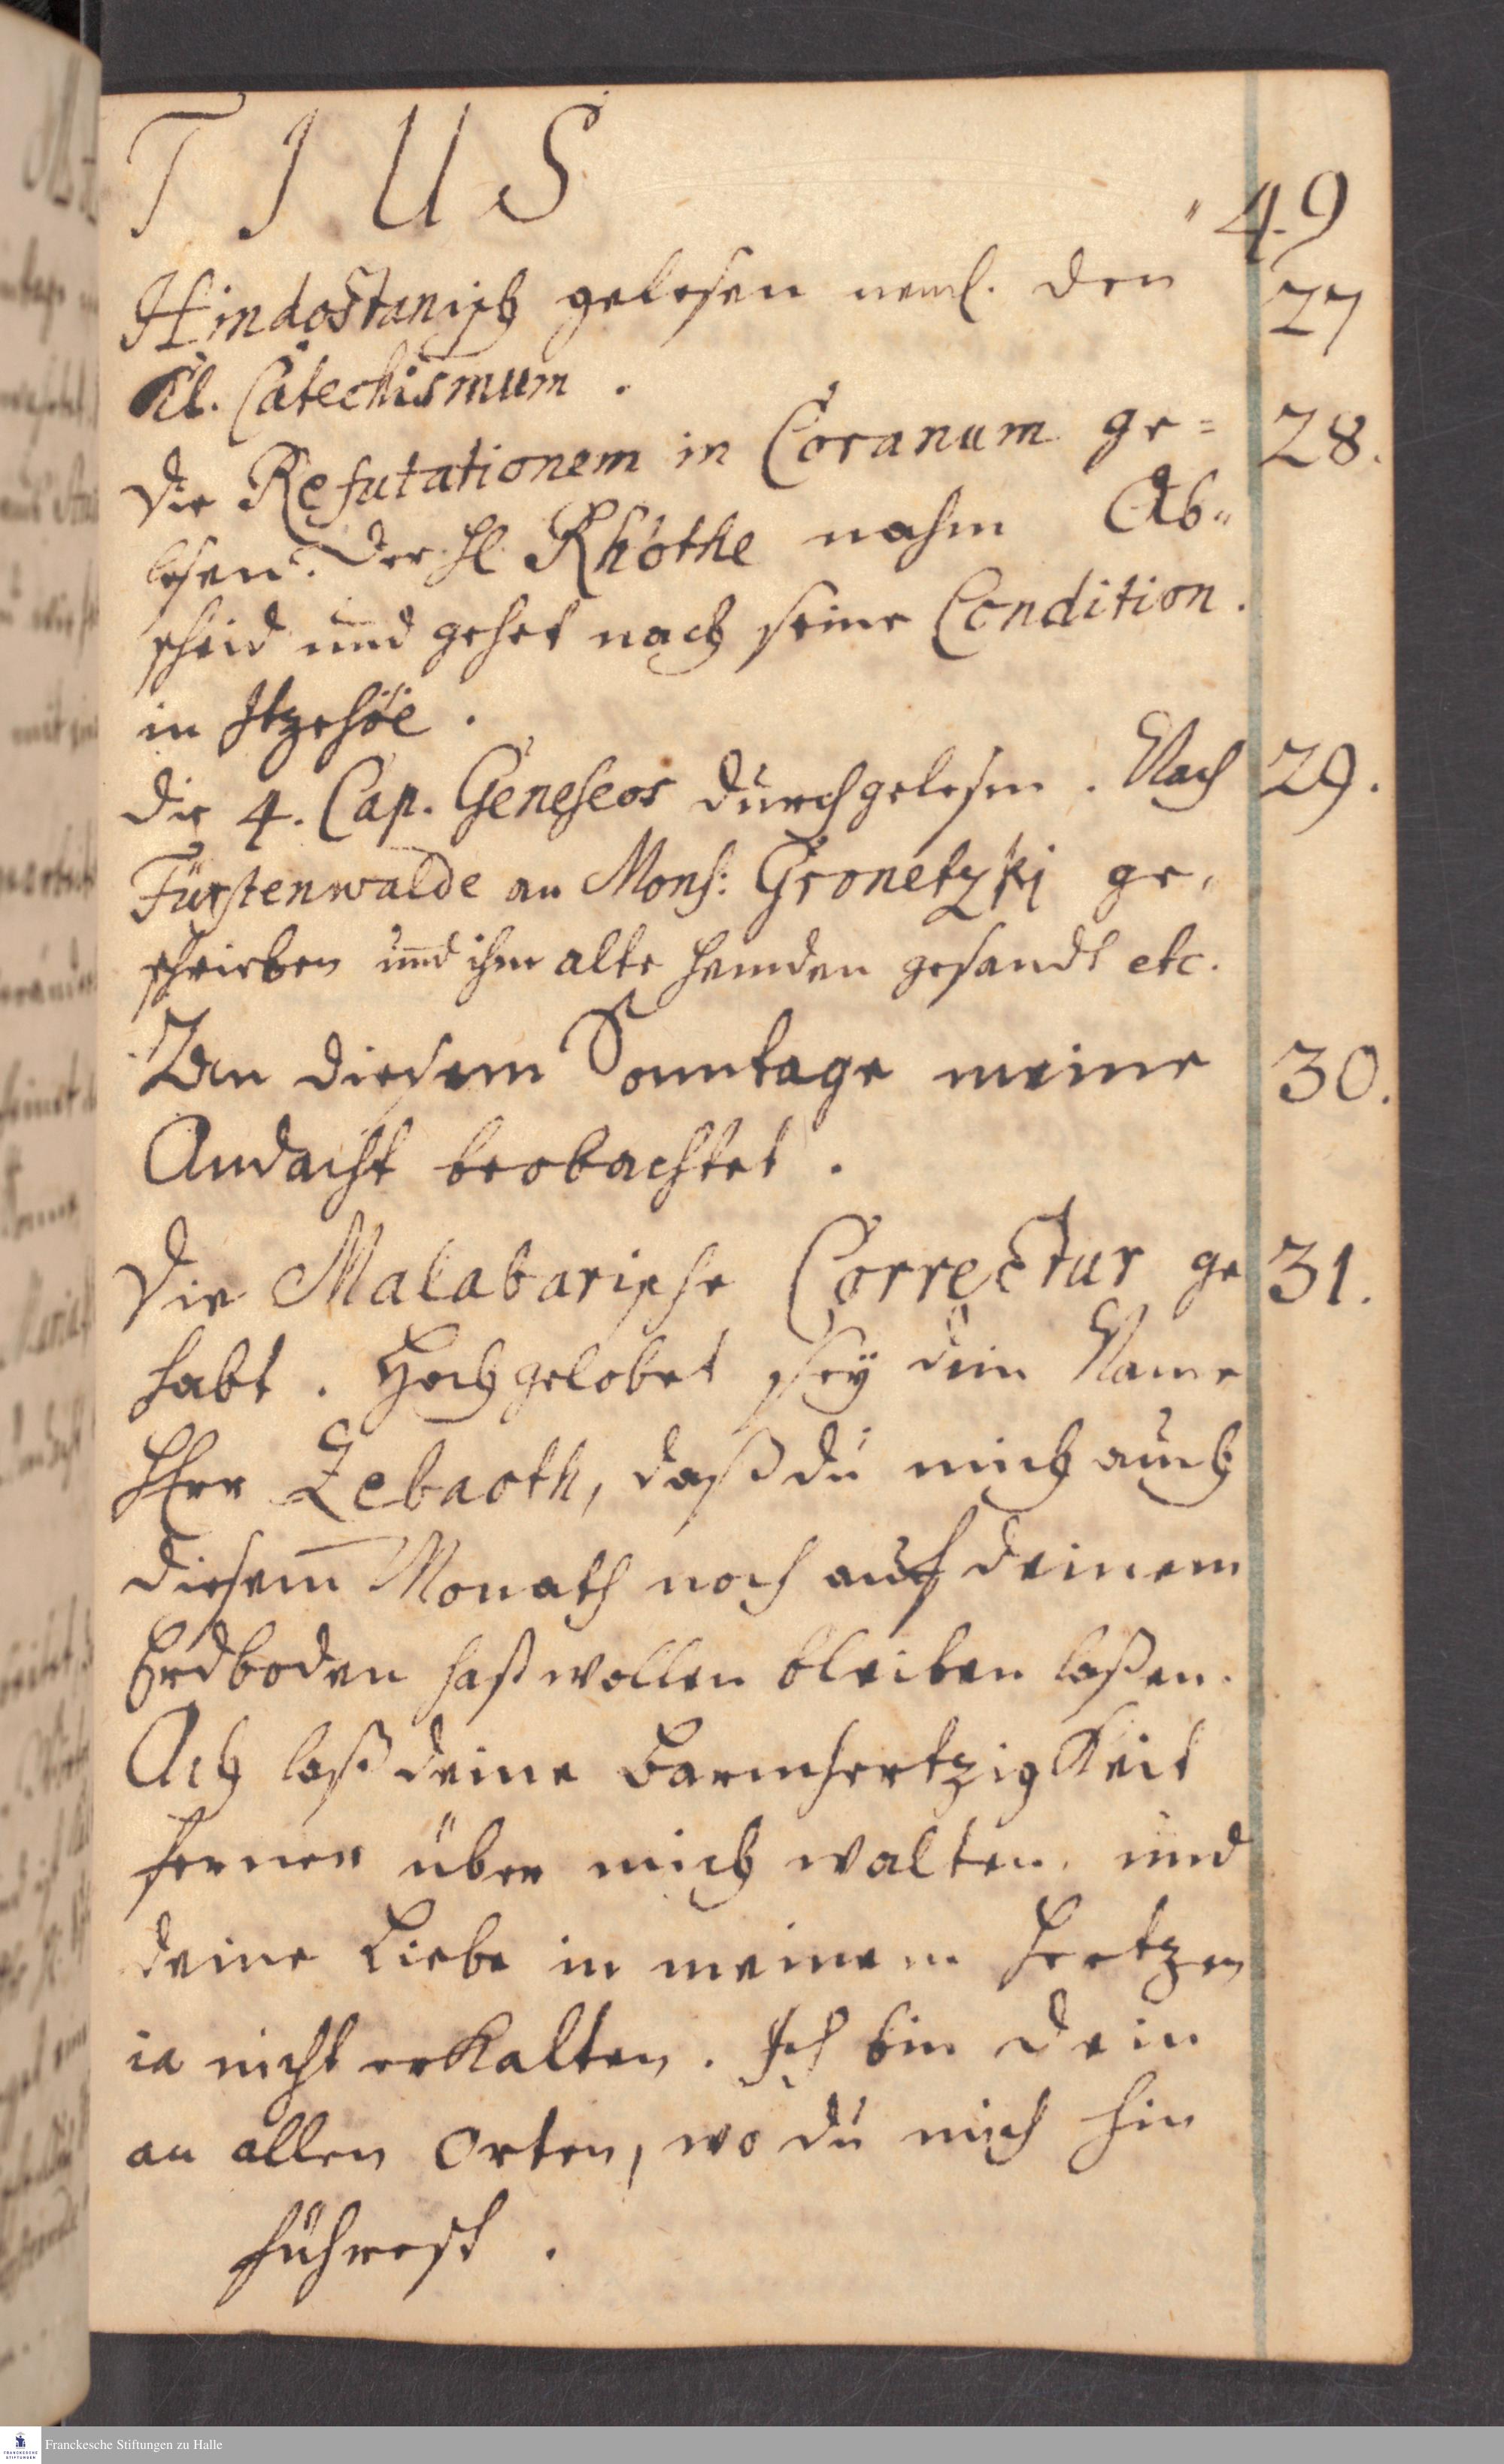 TIUS
49
Hindostanisch gelesen neml. den 27
Kl. Catechismum.
Die Refutationem in Coranum ge= 28.
lesen. Der H. Rhöthe nahm Ab=
scheid und gehet nach seine Condition.
in Itzehöe.
Die 4. Cap. Geneseos durchgelesen. Nach 29.
Fürstenwalde an Mons: Gronetzki ge=
schrieben und ihm alte Hemden gesandt etc.
An diesem Sonntage meine 30.
Andacht beobachtet.
Die Malabarische Correctur ge 31.
habt. Hochgelobet sey dein Name
HErr Zebaoth, daß du mich auch
diesem Monath noch auf deinem
Erdboden hast wollen bleiben laßen.
Ach laß deine Barmhertzigkeit
ferner über mich walten. und
deine Liebe in meinem Hertzen
ia nicht erkalten. Ich bin dein
an allen Orten, wo du mich hin
führest.
Franckesche Stiftungen zu Halle